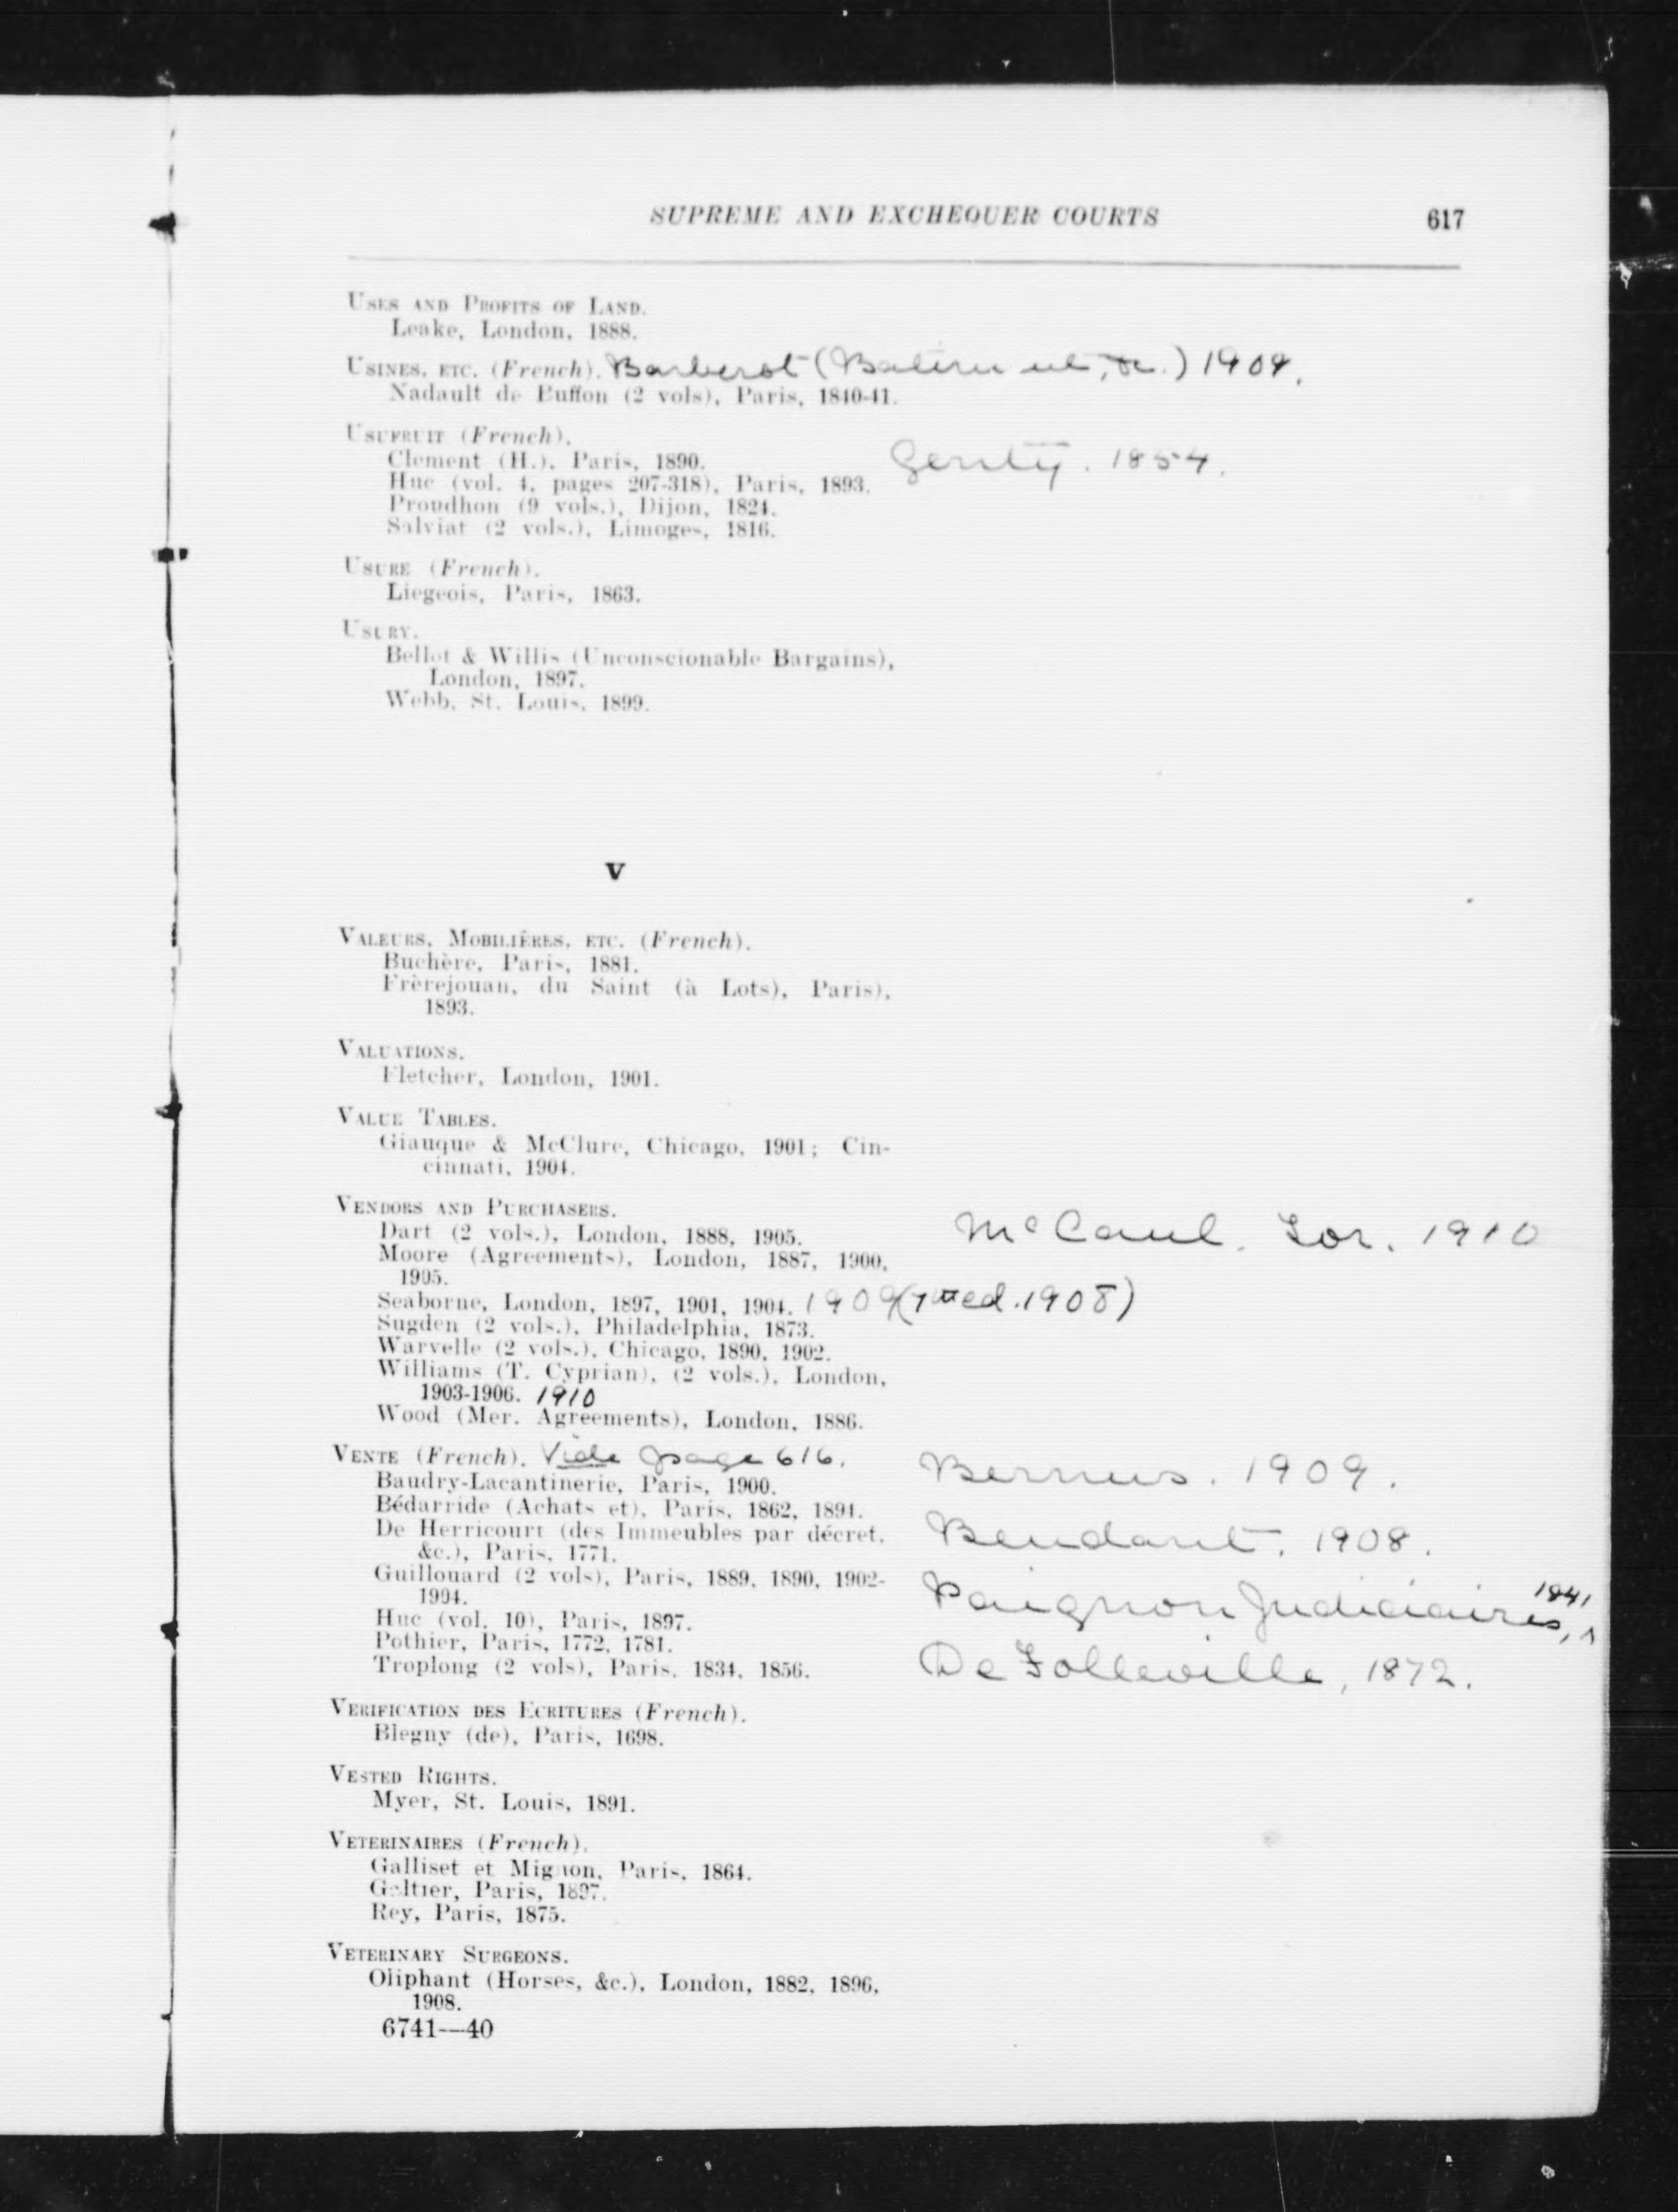 SUPREME AND EXCHEQUER COURTS 617
USES AND PROFITS OF LAND.
Leake, London, 1888.
USINES, ETC. (French). Barberot (Batiment, &c.) 1909.
Nadault de Buffon (2 vols), Paris, 1840-41.
USUFRUIT (French).
Clement (H.), Paris, 1890. Genty. 1854.
Huc (vol. 4, pages 207-318), Paris, 1893.
Proudhon (9 vols.), Dijon, 1824.
Salviat (2 vols.), Limoges, 1816.
USURE (French).
Liegeois, Paris, 1863.
USURY.
Bellot & Willis (Unconscionable Bargains),
London, 1897.
Webb, St. Louis, 1899.
V
VALEURS, MOBILIÈRES, ETC. (French).
Buchère, Paris, 1881.
Frèrejouan, du Saint (à Lots), Paris),
1893.
VALUATIONS.
Fletcher, London, 1901.
VALUE TABLES.
Giauque & McClure, Chicago, 1901; Cin-
cinnati, 1904.
VENDORS AND PURCHASERS.
Dart (2 vols.), London, 1888, 1905. McCaul. Tor. 1910
Moore (Agreements), London, 1887, 1900,
1905.
Seaborne, London, 1897, 1901, 1904. 1909 (7th ed. 1908)
Sugden (2 vols.), Philadelphia, 1873.
Warvelle (2 vols.), Chicago, 1890, 1902.
Williams (T. Cyprian), (2 vols.), London,
1903-1906. 1910
Wood (Mer. Agreements), London, 1886.
VENTE (French). Vide page 616.
Baudry-Lacantinerie, Paris, 1900. 1909.
Bédarride (Achats et), Paris, 1862, 1894.
De Herricourt (des Immeubles par décret, Beudant. 1908.
&c.), Paris, 1771.
Guillouard (2 vols), Paris, 1889, 1890, 1902-
1904. Paignon Judiciaires, 1841
Huc (vol. 10), Paris, 1897.
Pothier, Paris, 1772, 1781.
Troplong (2 vols), Paris, 1834, 1856. De Folleville, 1872.
VERIFICATION DES ECRITURES (French).
Blegny (de), Paris, 1698.
VESTED RIGHTS.
Myer, St. Louis, 1891.
VETERINAIRES (French).
Galliset et Mignon, Paris, 1864.
Galtier, Paris, 1897.
Rey, Paris, 1875.
VETERINARY SURGEONS.
Oliphant (Horses, &c.), London, 1882, 1896,
1908.
6741—40